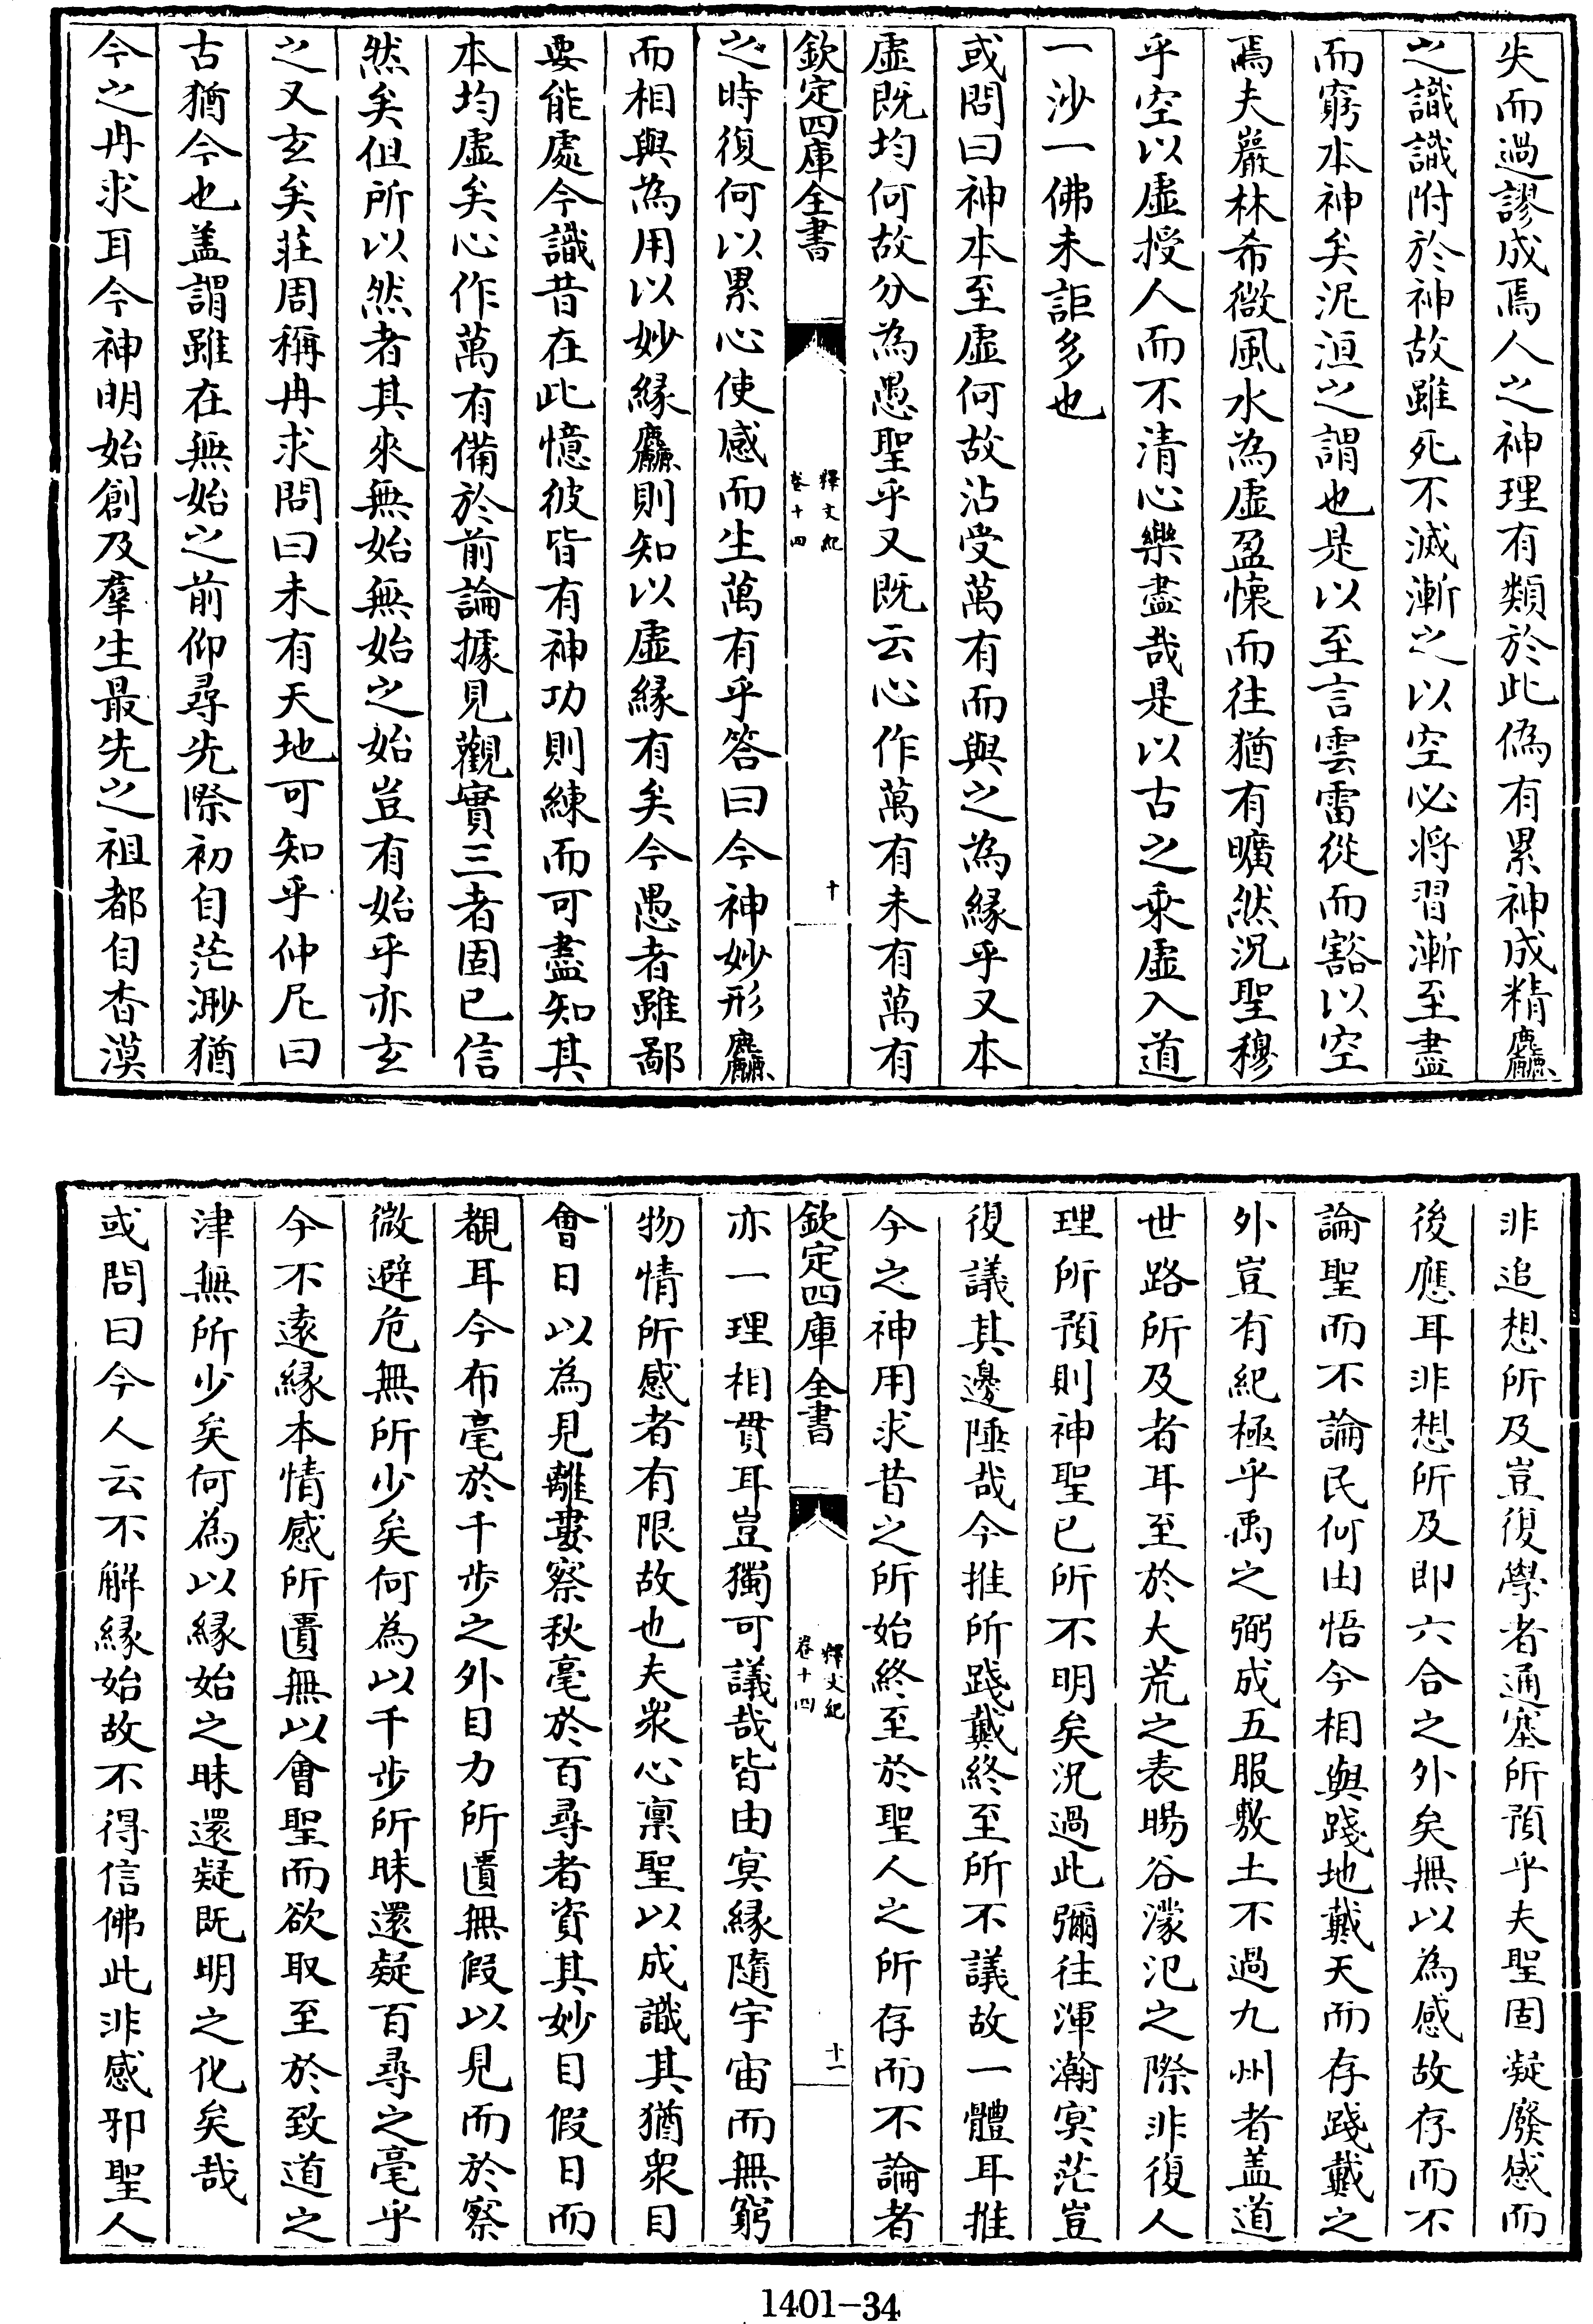 失而過謬成焉人之神理有類於此偽有累神成精麤
之識識附於神故雖死不滅漸之以空必將習漸至盡
而窮本神矣泥洹之謂也是以至言雲雷從而豁以空
焉夫巖林希微風水為虛盈懷而往猶有曠然況聖穆
乎空以虛授人而不清心樂盡哉是以古之乘虛入道
一沙一佛未詎多也
或問曰神本至虛何故沾受萬有而與之為緣乎又本
虛既均何故分為愚聖乎又既云心作萬有未有萬有
欽定四庫全書
釋文紀
卷十四
十
之時復何以累心使感而生萬有乎答曰今神妙形麤
而相與為用以妙緣麤則知以虛緣有矣今愚者雖鄙
要能處今識昔在此憶彼皆有神功則練而可盡知其
本均虛矣心作萬有備於前論據見觀實三者固已信
然矣但所以然者其來無始無始之始豈有始乎亦玄
之又玄矣莊周稱冉求問曰未有天地可知乎仲尼曰
古猶今也盖謂雖在無始之前仰尋先際初自茫渺猶
今之冉求耳今神明始創及羣生最先之祖都自杳漠
非追想所及豈復學者通塞所預乎夫聖固凝廢感而
後應耳非想所及即六合之外矣無以為感故存而不
論聖而不論民何由悟今相與踐地戴天而存踐戴之
外豈有紀極乎禹之弼成五服敷土不過九州者盖道
世路所及者耳至於大荒之表暘谷濛汜之際非復人
理所預則神聖已所不明矣況過此彌往渾瀚冥茫豈
復議其邊陲哉今推所踐戴終至所不議故一體耳推
今之神用求昔之所始終至於聖人之所存而不論者
欽定四庫全書
釋文紀
卷十四
十一
亦一理相貫耳豈獨可議哉皆由冥緣隨宇宙而無窮
物情所感者有限故也夫眾心稟聖以成識其猶眾目
會日以為見離婁察秋毫於百尋者資其妙目假日而
覩耳今布毫於千步之外目力所匱無假以見而於察
微避危無所少矣何為以千步所昧還疑百尋之毫乎
今不遠緣本情感所匱無以會聖而欲取至於致道之
津無所少矣何為以緣始之昧還疑既明之化矣哉
或問曰今人云不解緣始故不得信佛此非感邪聖人
1401-34